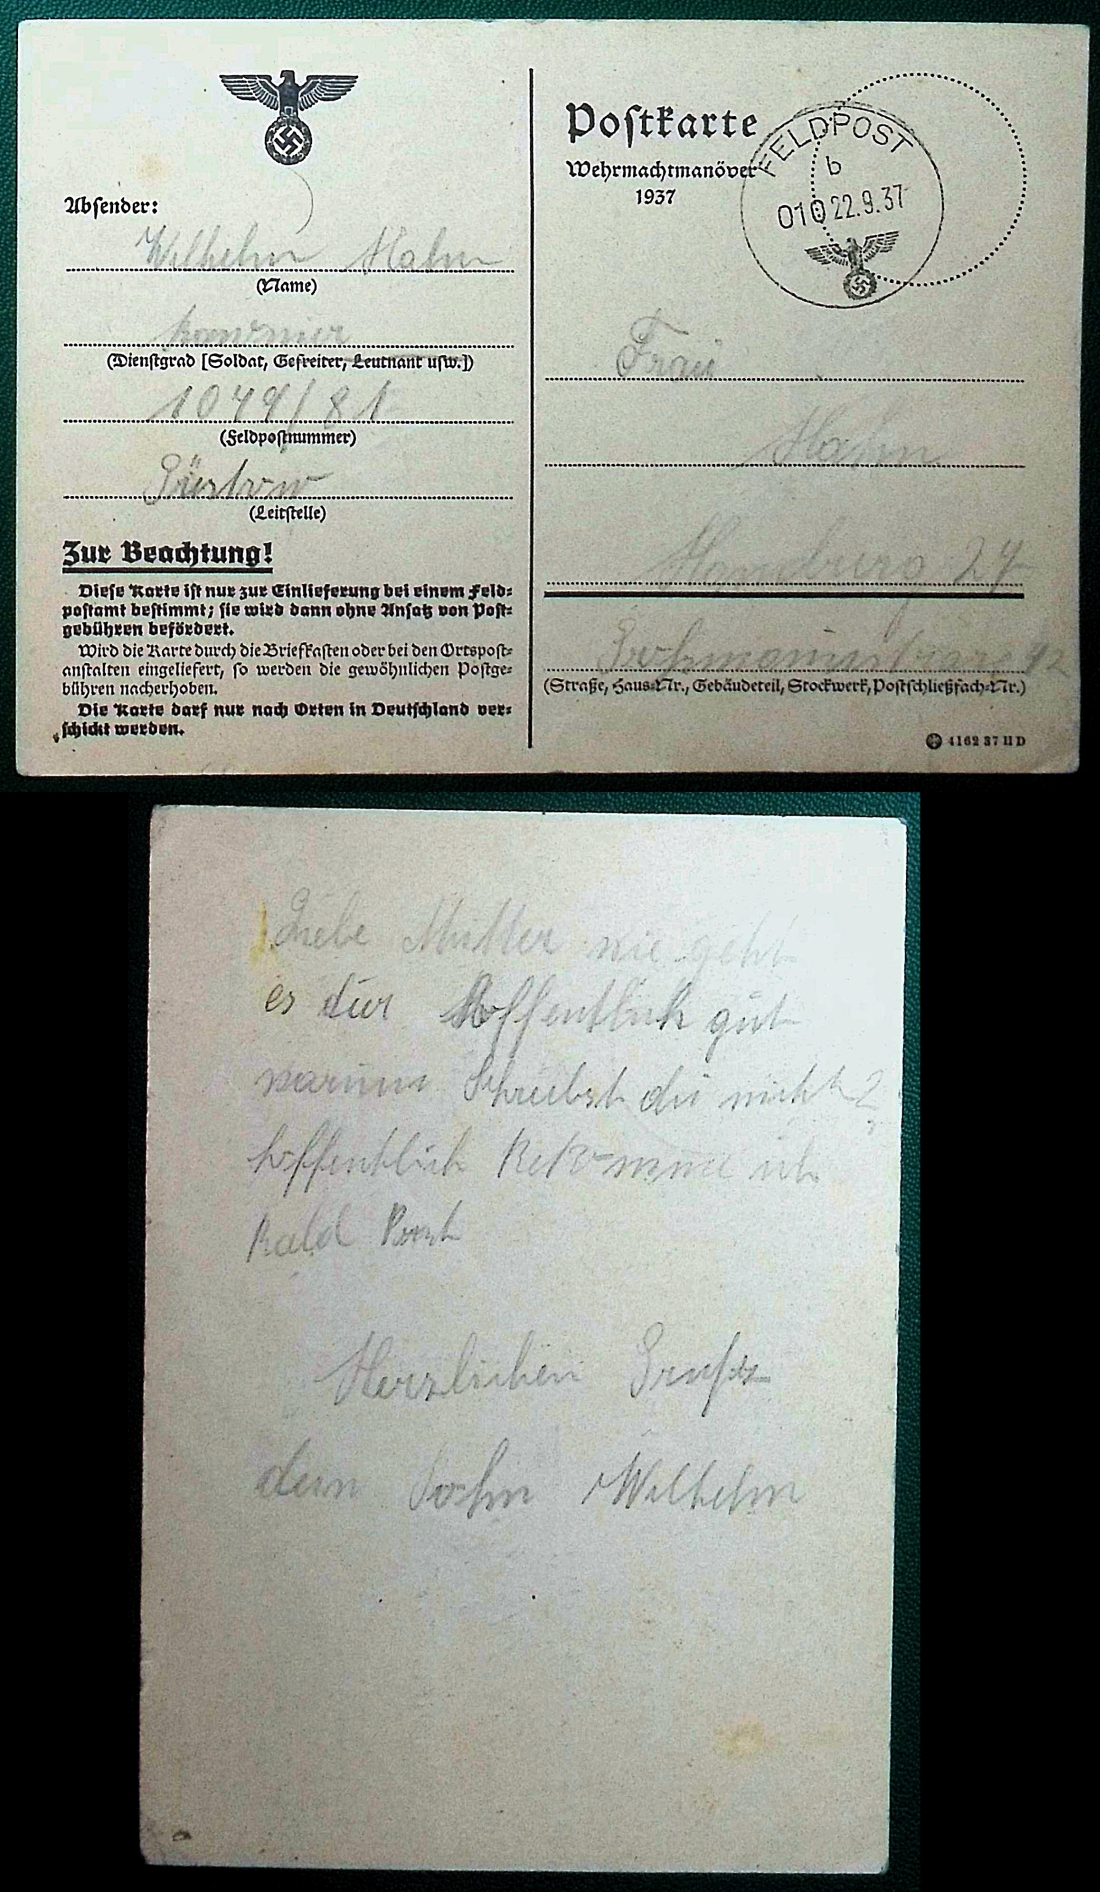 Absender:
Wilhelm Hahn
(Name)
(Dienstgrad [Soldat, Gefreiter, Leutnant usw.])
(Feldpostnummer)
Güstrow
(Leitstelle)
Zur Beachtung!
Diese Karte ist nur zur Einlieferung bei einem Feld-
postamt bestimmt; sie wird dann ohne Ansatz von Post-
gebühren befördert.
Wird die Karte durch die Briefkasten oder bei den Ortspost-
anstalten eingeliefert, so werden die gewöhnlichen Postge-
bühren nacherhoben.
Die Karte darf nur nach Orten in Deutschland ver-
schickt werden.
Postkarte
Wehrmachtmanöver
1937
FELDPOST
b
010 22.9.37
Frau
Hahn
Hamburg 24
(Straße, Haus-Nr., Gebäudeteil, Stockwerk, Postschließfach-Nr.)
4162 37 II D
Liebe Mutter wie geht
es dir Hoffentlich gut
warum schreibst du nicht?
hoffentlich Bekomme ich
Bald Post
Herzlichen Gruß
dein Sohn Wilhelm